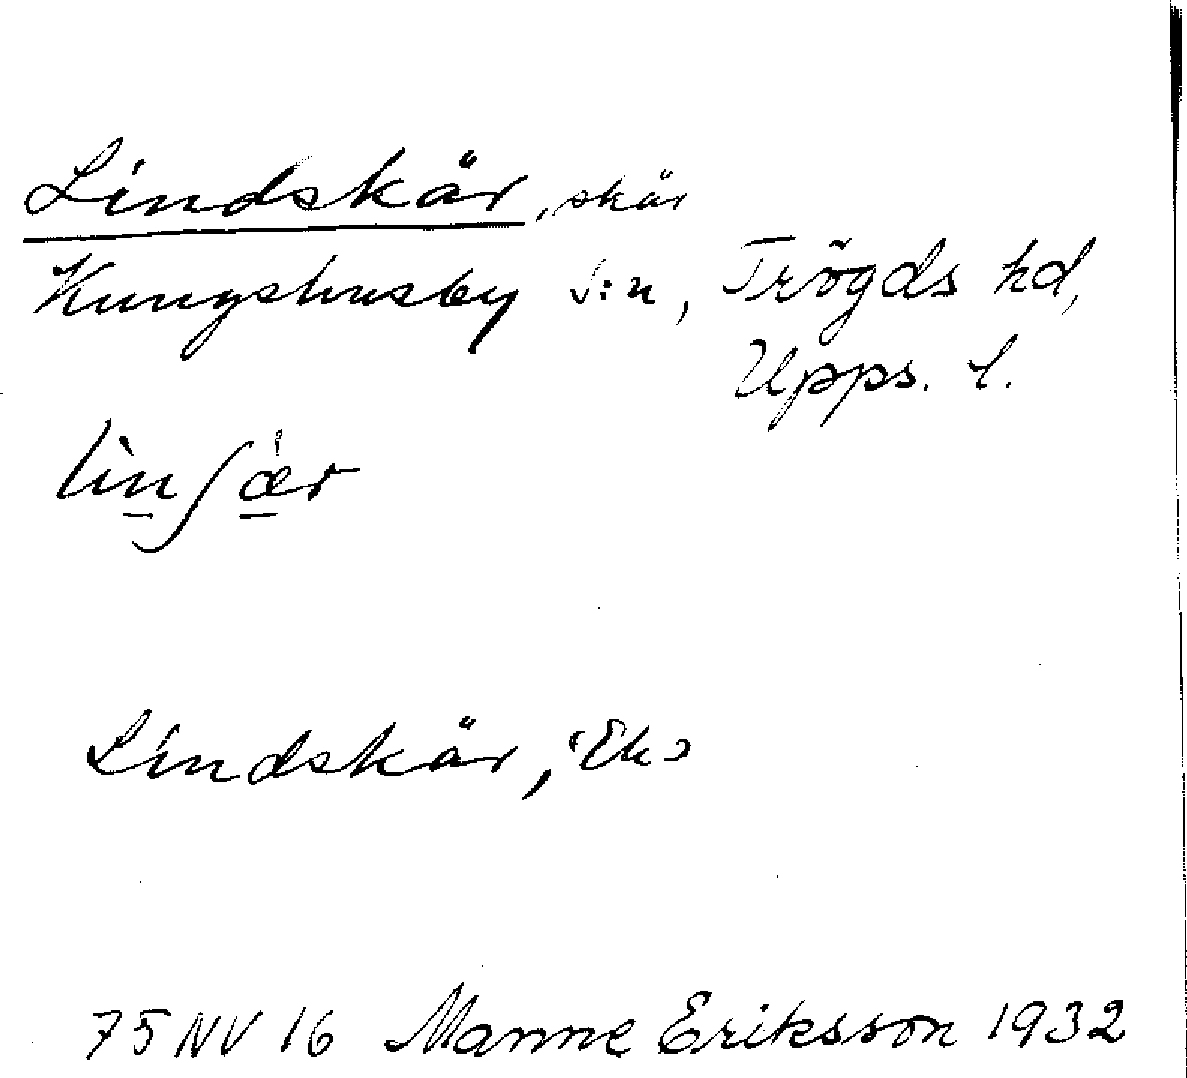 Lindskär, skär
Kungshusby s:n, Trögds hd,
Upps. l.
lìnʃǽr
Lindskär, (Ek)
75 NV 16 Manne Eriksson 1932